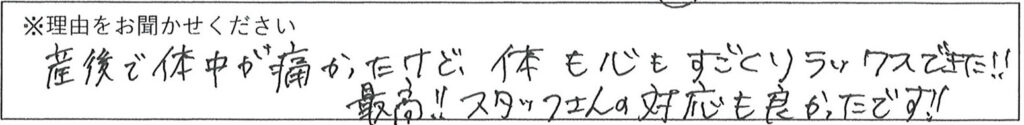 ※理由をお聞かせください
産後で体中が痛かったけど、体も心もすごくリラックスできた!!
最高!!スタッフさんの対応も良かったです!!